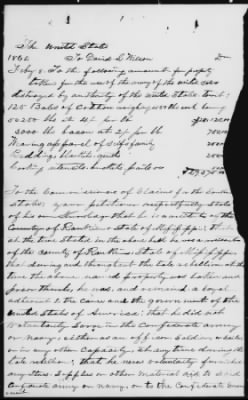 The United States
1862 To David D Dr
Feby 8. To the following amount for property
taken for the use of the army of the United States
destroyed by authority of the United States
125 Bales of Cotton weighing each
50200 lbs at per lb
5000 lbs bacon at per lb
Wearing apparel of self & family
Bedding, blankets, quilts
Cooking utensils
To the Commissioners of Claims for the Southern
states, your petitioner respectfully states
of his own knowledge that he is a resident of the
County of Rankin & State of Mississippi; that
at the time stated in the above bill he was a resident
of the County of Rankin State of Mississippi
that during and throughout the late rebellion at the
time the above named property was taken and
from thence, he was and remained a loyal
adherent to the cause and the government of the
United States of America; that he did not
voluntarily serve in the Confederate army
or navy, either as an officer, soldier, sailor
or in any other capacity, at any time during the
late rebellion; that he never voluntarily furnished
any stores, supplies or other material aid to said
Confederate army or navy, or to the Confederate